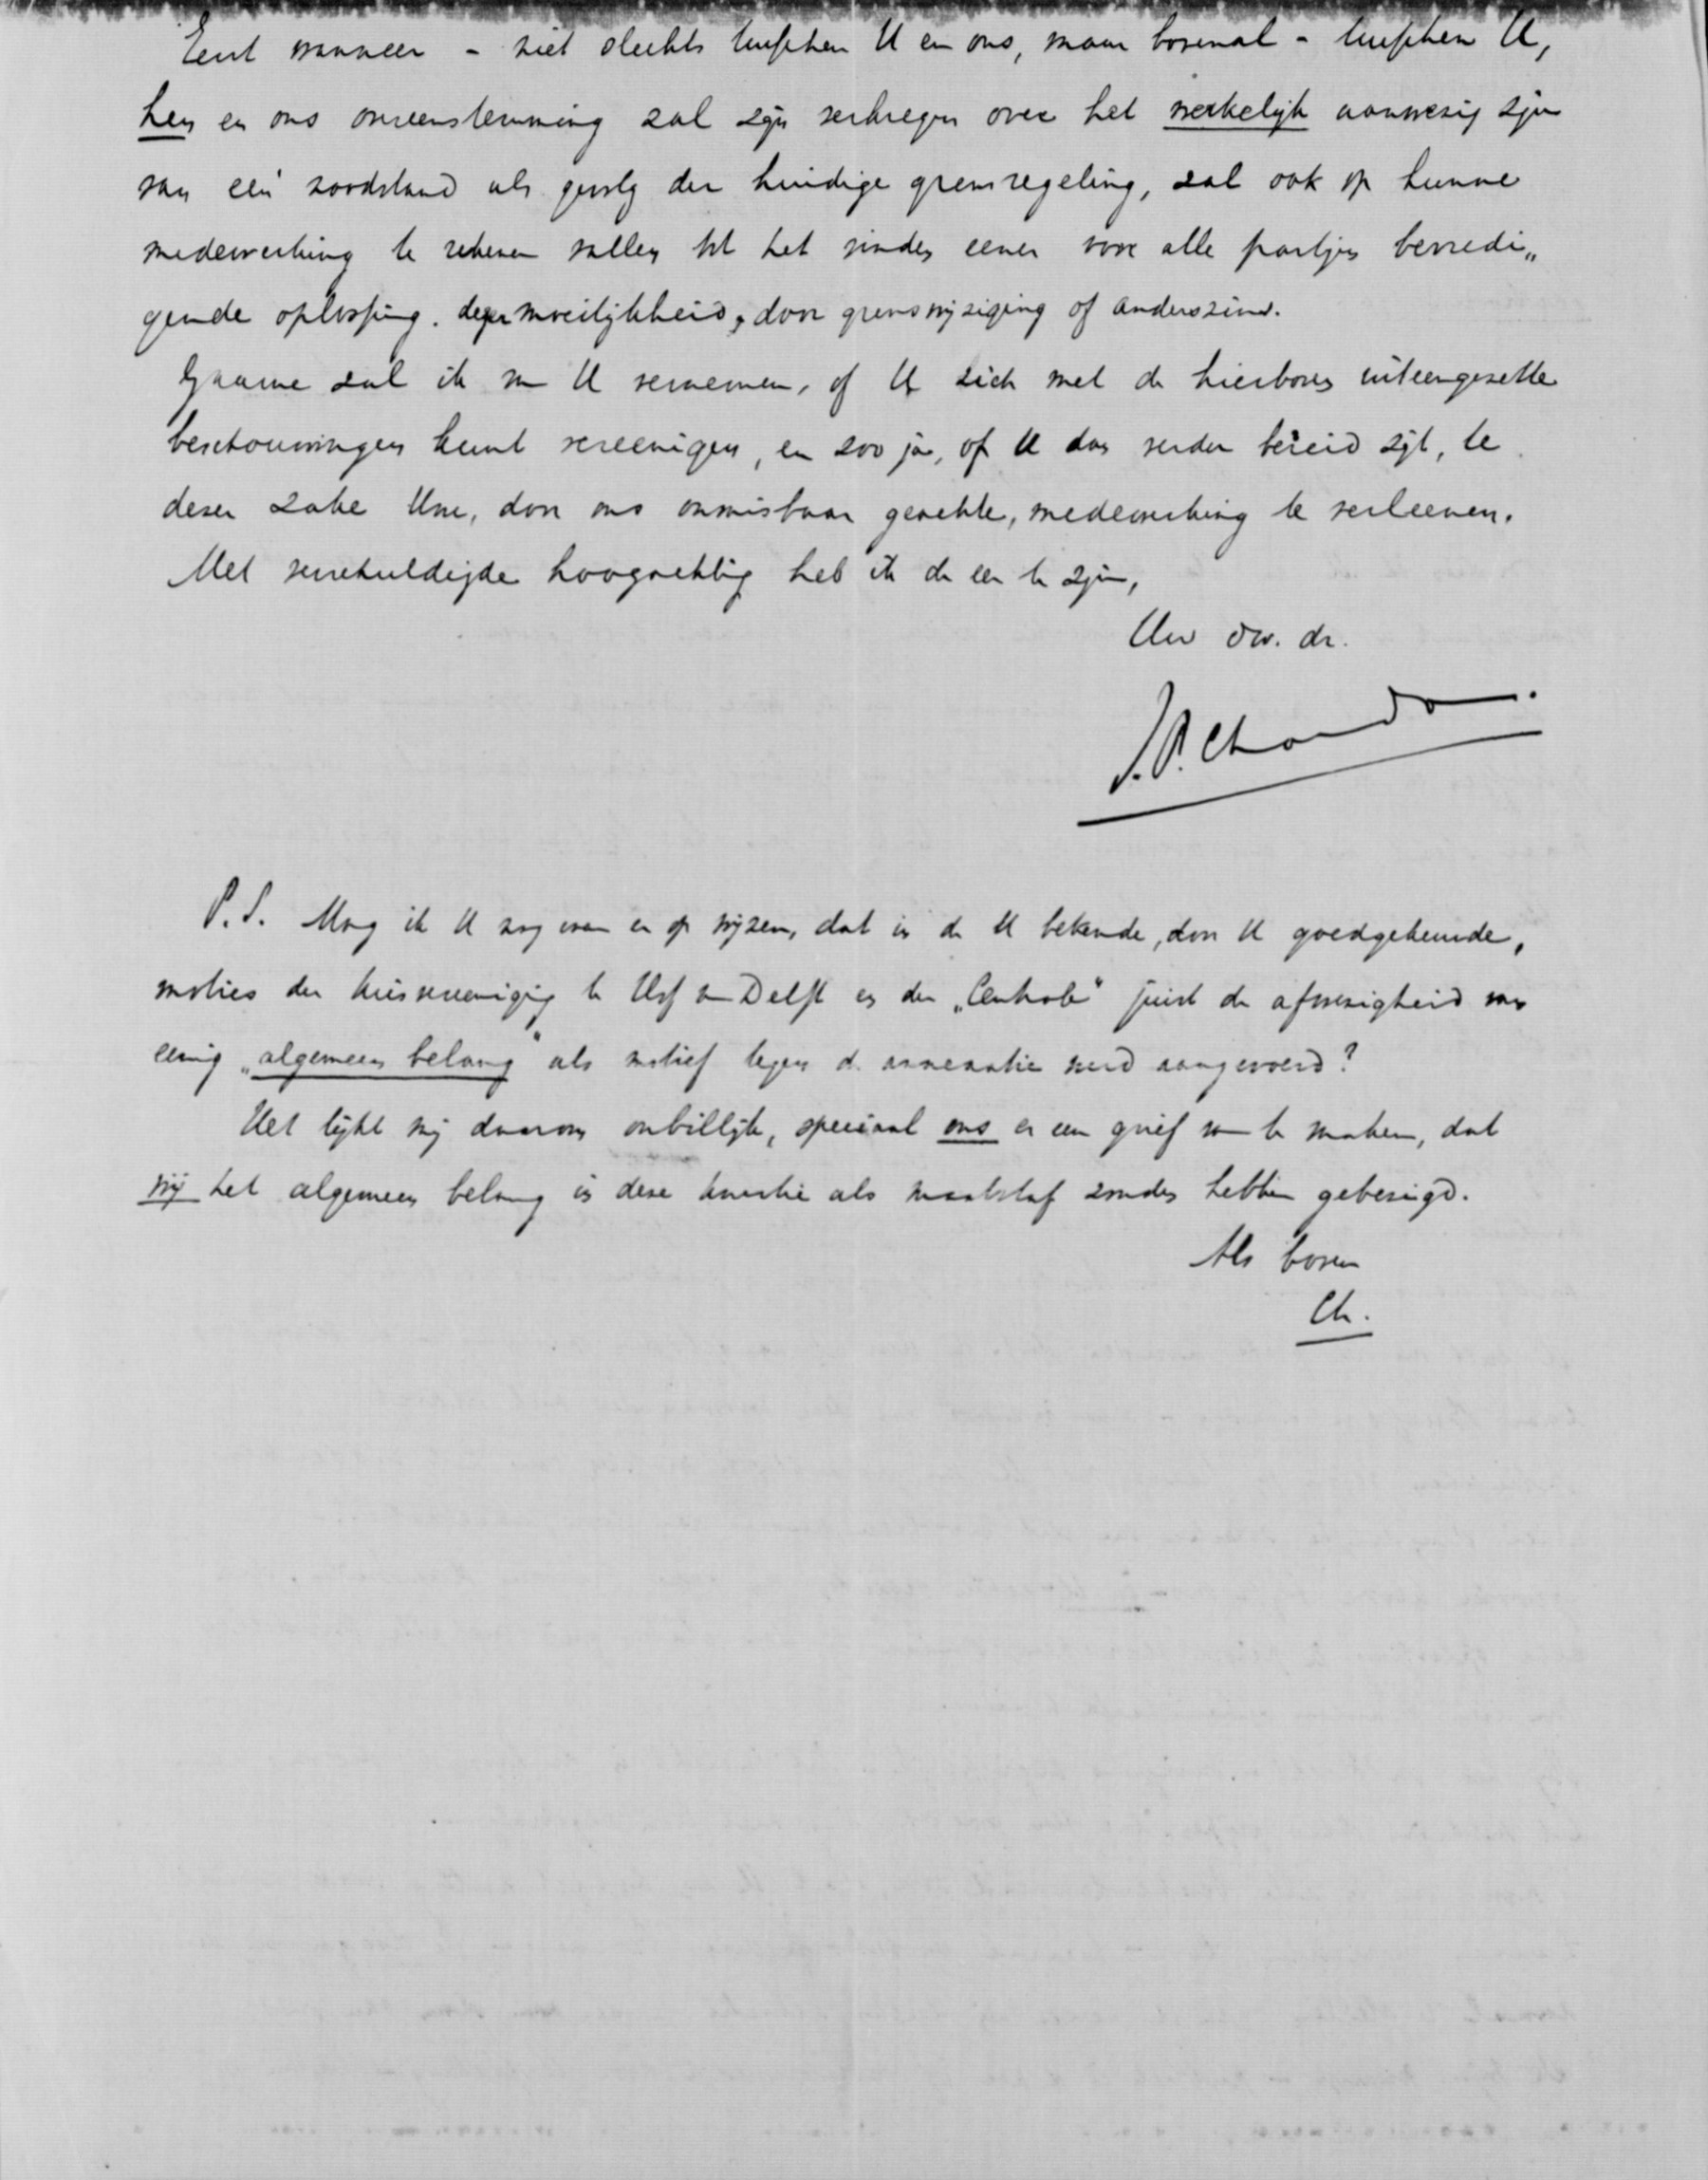 Eerst wanneer - niet slechts tusschen U en ons, maar bovenal - tusschen U,
hen en ons overeenstemming zal zijn verkregen over het werkelijk aanwezig zijn
van een noodstand als gevolg der huidige grensregeling, zal ook op hunne
medewerking te rekenen vallen tot het vinden eener voor alle partijen bevredi„
gende oplossing dezer moeilijkheid, door grenswijziging of anderszins.
Gaarne zal ik van U vernemen, of U zich met de hierboven uiteengezette
beschouwingen kunt vereenigen, en zoo ja, of U dan verder bereid zijt, te
dezer zake Uwe, door ons onmisbaar geachte, medewerking te verleenen.
Met verschuldigde hoogachting heb ik de eer te zijn,
Uw dw. dr.
P.S. Mag ik U nog even er op wijzen, dat in de U bekende, door U goedgekeurde,
moties der kiesvereeniging te Hof van Delft en der „Centrale" juist de afwezigheid van
eenig „algemeen belang" als motief tegen de annexatie werd aangevoerd?
Het lijkt mij daarom onbillijk, speciaal ons er een grief van te maken, dat
wij het algemeen belang in deze kwestie als maatstaf zouden hebben gebezigd.
Als boven
Ch.